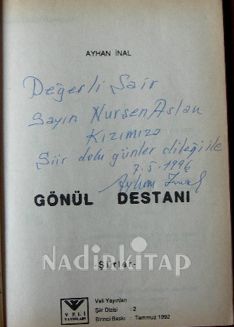 AYHAN İNAL
Değerli Şair
Sayın Nurşen Aslan
Kızımıza
Şiir dolu günler dileği ile
7.5.1996
Ayhan İnal
GÖNÜL DESTANI
-Şiirler-
NADİR kitap
VELİ
YAYINLARI
Veli Yayınları
Şiir Dizisi : 2
Birinci Baskı : Temmuz 1992